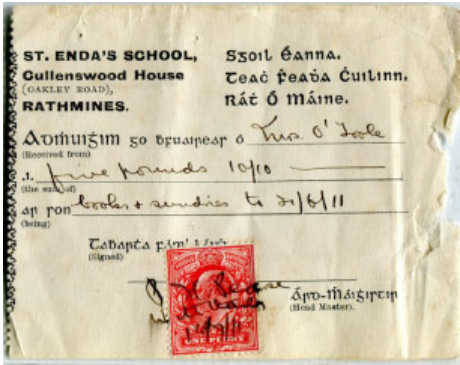 ST. ENDA'S SCHOOL,
Cullenswood House
(OAKLEY ROAD),
RATHMINES.
Sgoil Éanna.
Teaċ Ḟeaḋa Ċuilinn,
Ráṫ Ó Máine.
Admuiġim go ḃfuaireas ó Mrs O'Toole
(Received from)
.i. five pounds 10/10
(the sum of)
ar son books & sundries to 21/6/11
(being)
Taḃarta
(Signed)
P
ONE PENNY
Árd-Ṁáiġistir
(Head Master).